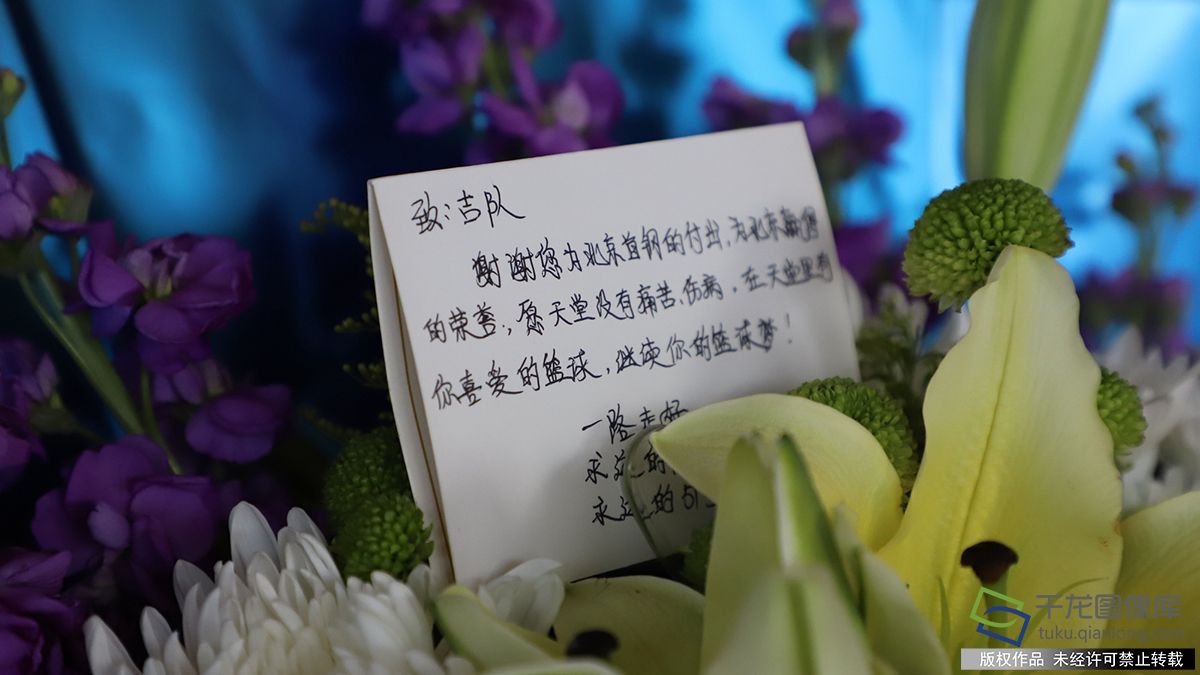 致:吉队
谢谢您为北京首钢的付出,为北京赢得
的荣誉,愿天堂没有痛苦,伤病,在天堂里有
你喜爱的篮球,继续你的篮球梦!
一路走好
永远的
永远的51
千龙图像库
tuku.qianlong.com
版权作品 未经许可禁止转载